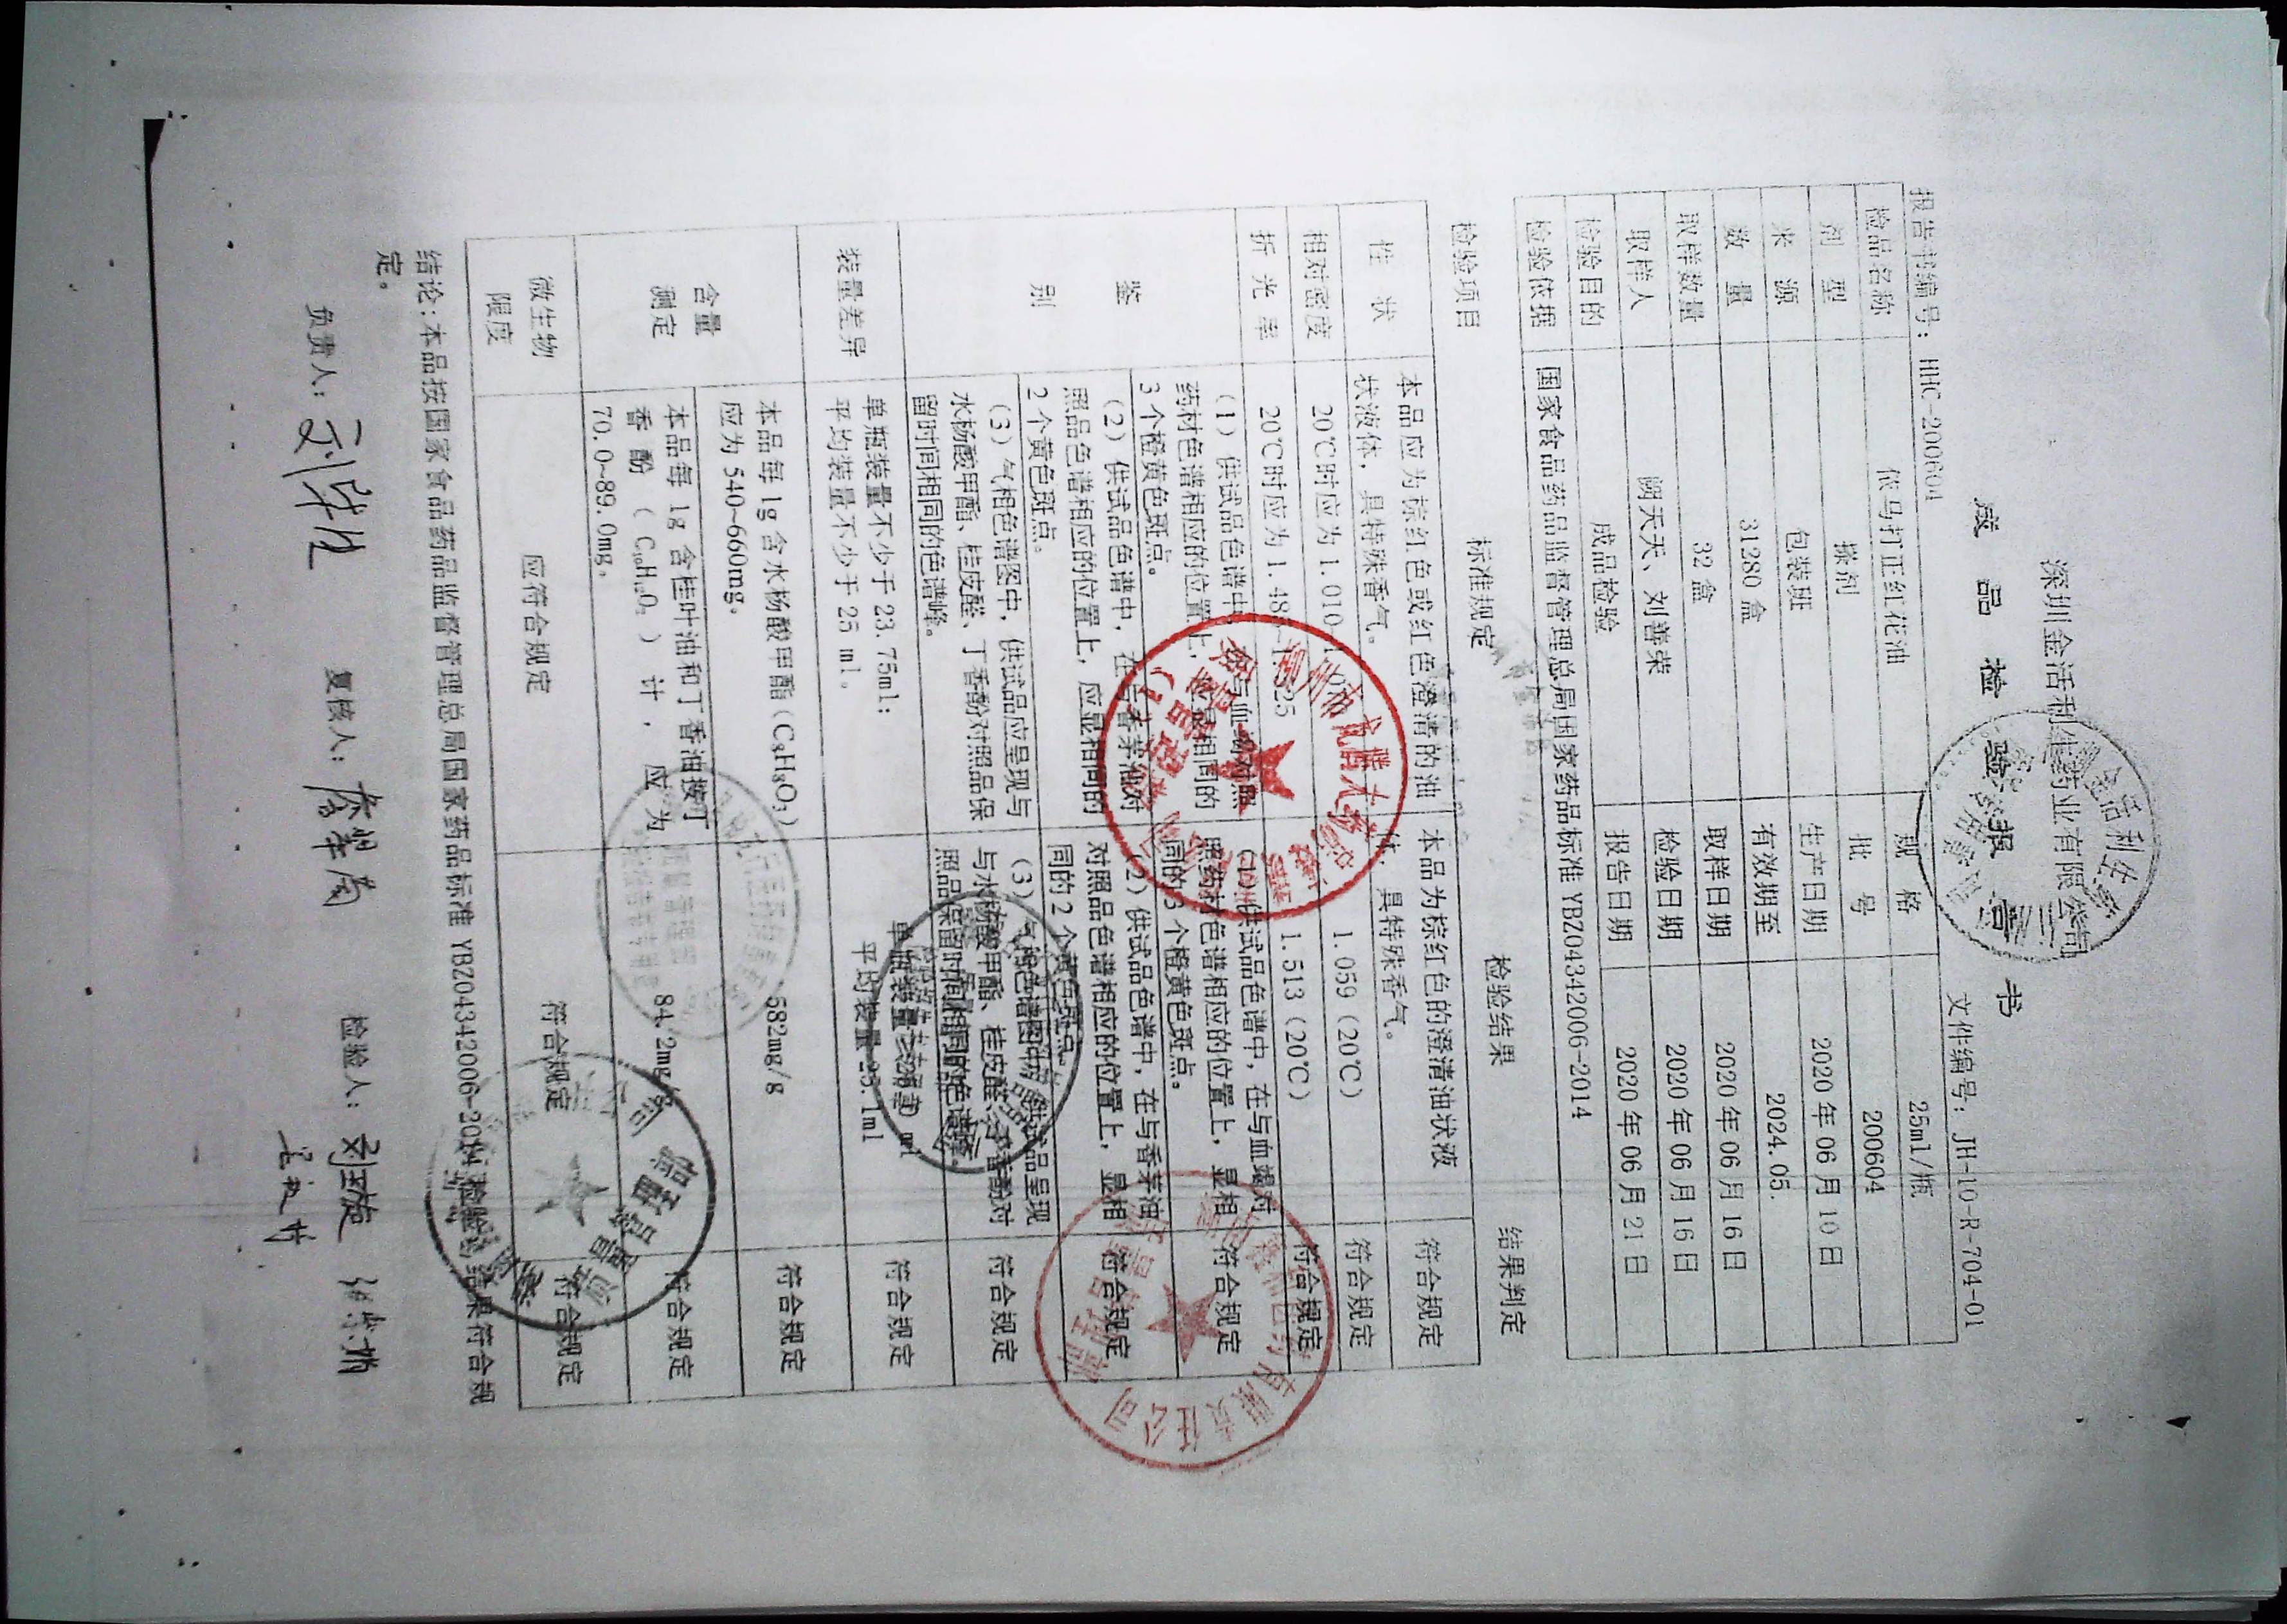 深圳金活利生药业有限公司
成 品 检 验 报 告 书
报告书编号：HHC-200604 文件编号：JH-10-R-704-01
检品名称 依马打正红花油 规 格 25ml/瓶
剂 型 搽剂 批 号 200604
来 源 包装班 生产日期 2020 年 06 月 10 日
数 量 31280 盒 有效期至 2024.05.
取样数量 32 盒 取样日期 2020 年 06 月 16 日
取样人 阙天天、刘善荣 检验日期 2020 年 06 月 16 日
检验目的 成品检验 报告日期 2020 年 06 月 21 日
检验依据 国家食品药品监督管理总局国家药品标准 YBZ04342006-2014
检验项目 标准规定 检验结果 结果判定
性 状 本品应为棕红色或红色澄清的油 本品为棕红色的澄清油状液 符合规定
状液体，具特殊香气。 体，具特殊香气。
相对密度 20℃时应为 1.010- 1.059（20℃） 符合规定
折 光 率 20℃时应为 1.48 1.513（20℃） 符合规定
鉴 别 （1）供试品色谱中，在与血竭对照 （1）供试品色谱中，在与血竭对 符合规定
药材色谱相应的位置上，应显相同的 照药材色谱相应的位置上，显相
3 个橙黄色斑点。 同的 3 个橙黄色斑点。
（2）供试品色谱中，在与香茅油对 （2）供试品色谱中，在与香茅油 符合规定
照品色谱相应的位置上，应显相同的 对照品色谱相应的位置上，显相
2 个黄色斑点。 同的 2 个黄色斑点。
（3）气相色谱图中，供试品应呈现与 （3）气相色谱图中，供试品呈现 符合规定
水杨酸甲酯、桂皮醛、丁香酚对照品保 与水杨酸甲酯、桂皮醛、丁香酚对
留时间相同的色谱峰。 照品保留时间相同的色谱峰。
装量差异 单瓶装量不少于 23.75ml； 单瓶装量 符合规定
平均装量不少于 25 ml。 平均装量 25.1ml
含量测定 本品每 1g 含水杨酸甲酯（C₈H₈O₃） 582mg/g 符合规定
应为 540~660mg。
本品每 1g 含桂叶油和丁香油按丁 84.2mg/g 符合规定
香酚（C₁₀H₁₂O₂）计，应为
70.0~89.0mg。
微生物限度 应符合规定 符合规定 符合规定
结论：本品按国家食品药品监督管理总局国家药品标准 YBZ04342006-2014 检验，结果符合规
定。
负责人： 复核人： 检验人：
质量管理部